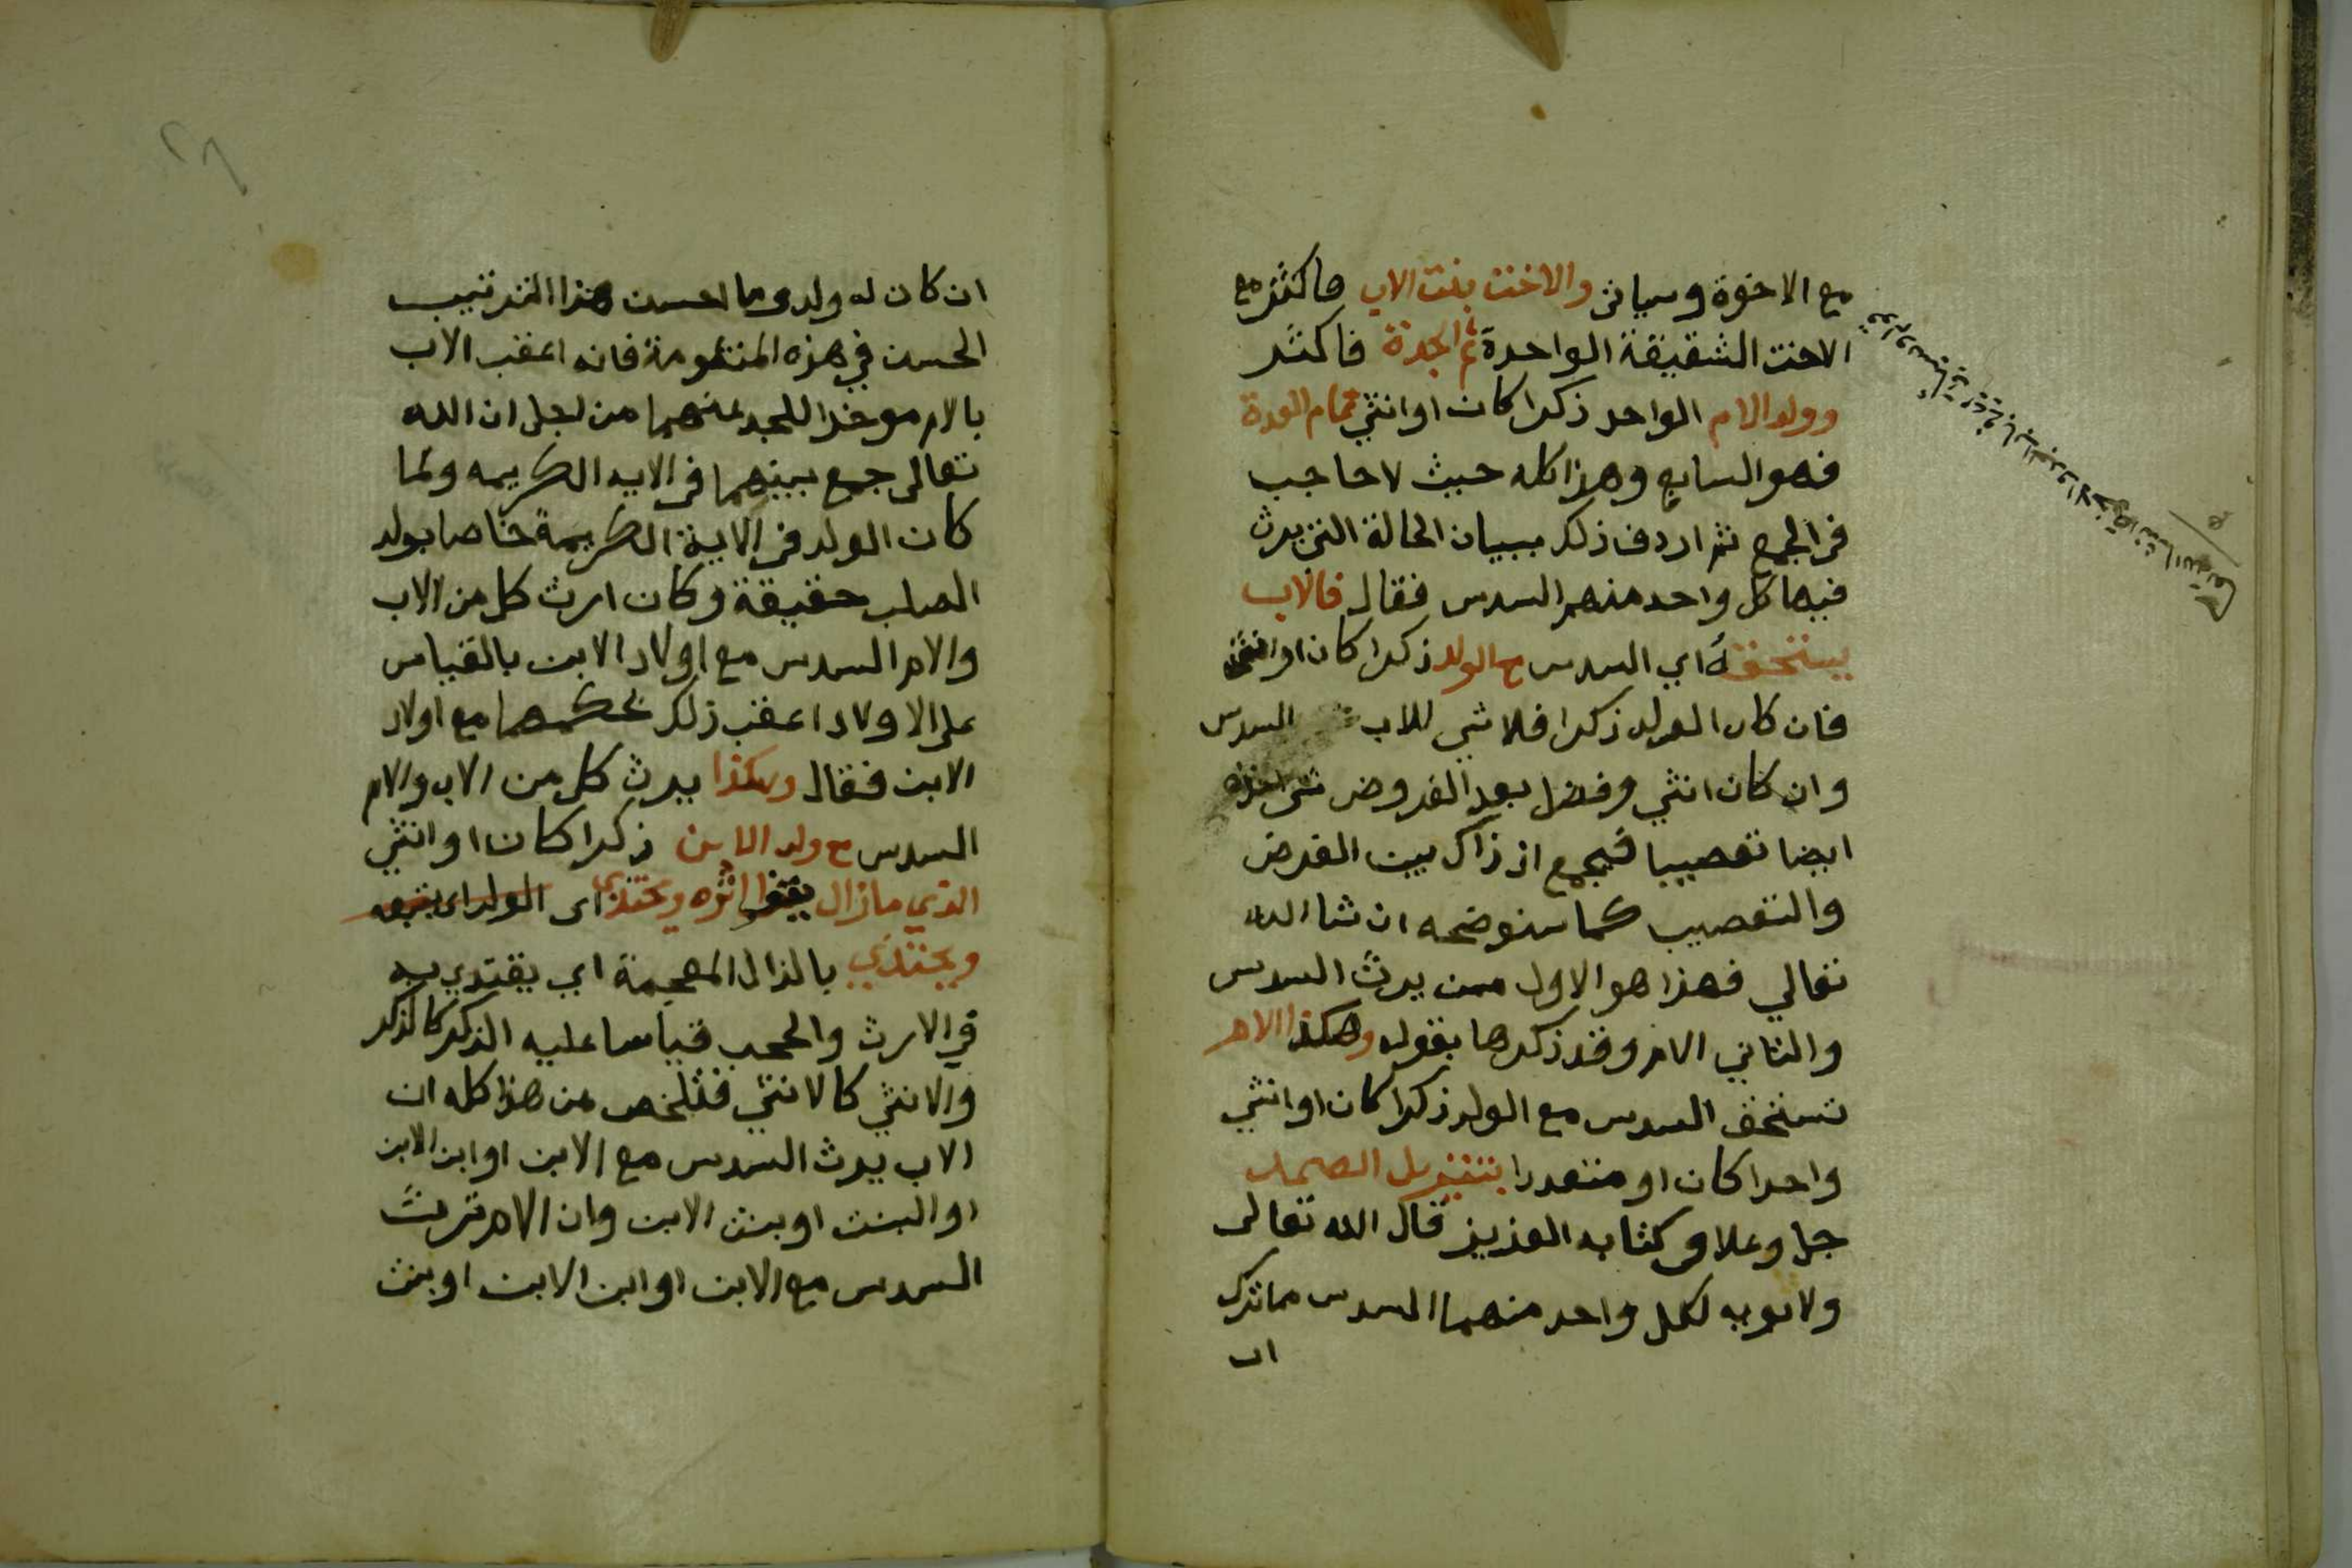 مع الاخوة وسياتى والاخت بنت الاب فاكثر مع
الاخت الشقيقة الواحدة ثم الجدة فاكثر
وولد الام الواحد ذكرا كان او انثي تمام العدة
فهو السابع وهذا كله حيث لا حاجب
فى الجمع ثم اردف ذلك ببيان الحالة التى يرث
فيها كل واحد منهم السدس فقال فالاب
يستحقه اي السدس مع الولد ذكرا كان او انثى
فان كان الولد ذكرا فلا شي للاب السدس
وان كان انثي وفضل بعد الفروض شى اخذه
ايضا تعصيبا فيجمع اذ ذاك بين الفرض
والتعصيب كما سنوضحه ان شا الله
تعالي فهذا هو الاول ممن يرث السدس
والثاني الام وقد ذكرها بقوله وهكذا الام
تستحق السدس مع الولد ذكرا كان او انثي
واحدا كان او متعددا بتنزيل الصمد
جل وعلا فى كتابه العزيز قال الله تعالى
ولابويه لكل واحد منهما السدس مما ترك
ان
ان كان له ولد وما احسن هذا الترتيب
الحسن في هذه المنظومة فانه اعقب الاب
بالام موخرا للجد عنهما من اجل ان الله
تعالى جمع بينهما فى الايه الكريمه ولما
كان الولد فى الاية الكريمة خاصا بولد
الصلب حقيقة وكان ارث كل من الاب
والام السدس مع اولاد الابن بالقياس
على الاولاد اعقب ذلك بحكمهما مع اولاد
الابن فقال وهكذا يرث كل من الاب والام
السدس مع ولد الابن ذكرا كان او انثي
الذي مازال يقفوا اثره ويحتذي اى الولد اى يتبعه
ويحتذي بالذال المعجمة اي يقتدي به
في الارث والحجب قياسا عليه الذكر كالذكر
والانثي كالانثي فتلخص من هذا كله ان
الاب يرث السدس مع الابن او ابن الابن
او البنت او بنت الابن وان الام ترث
السدس مع الابن او ابن الابن او بنت